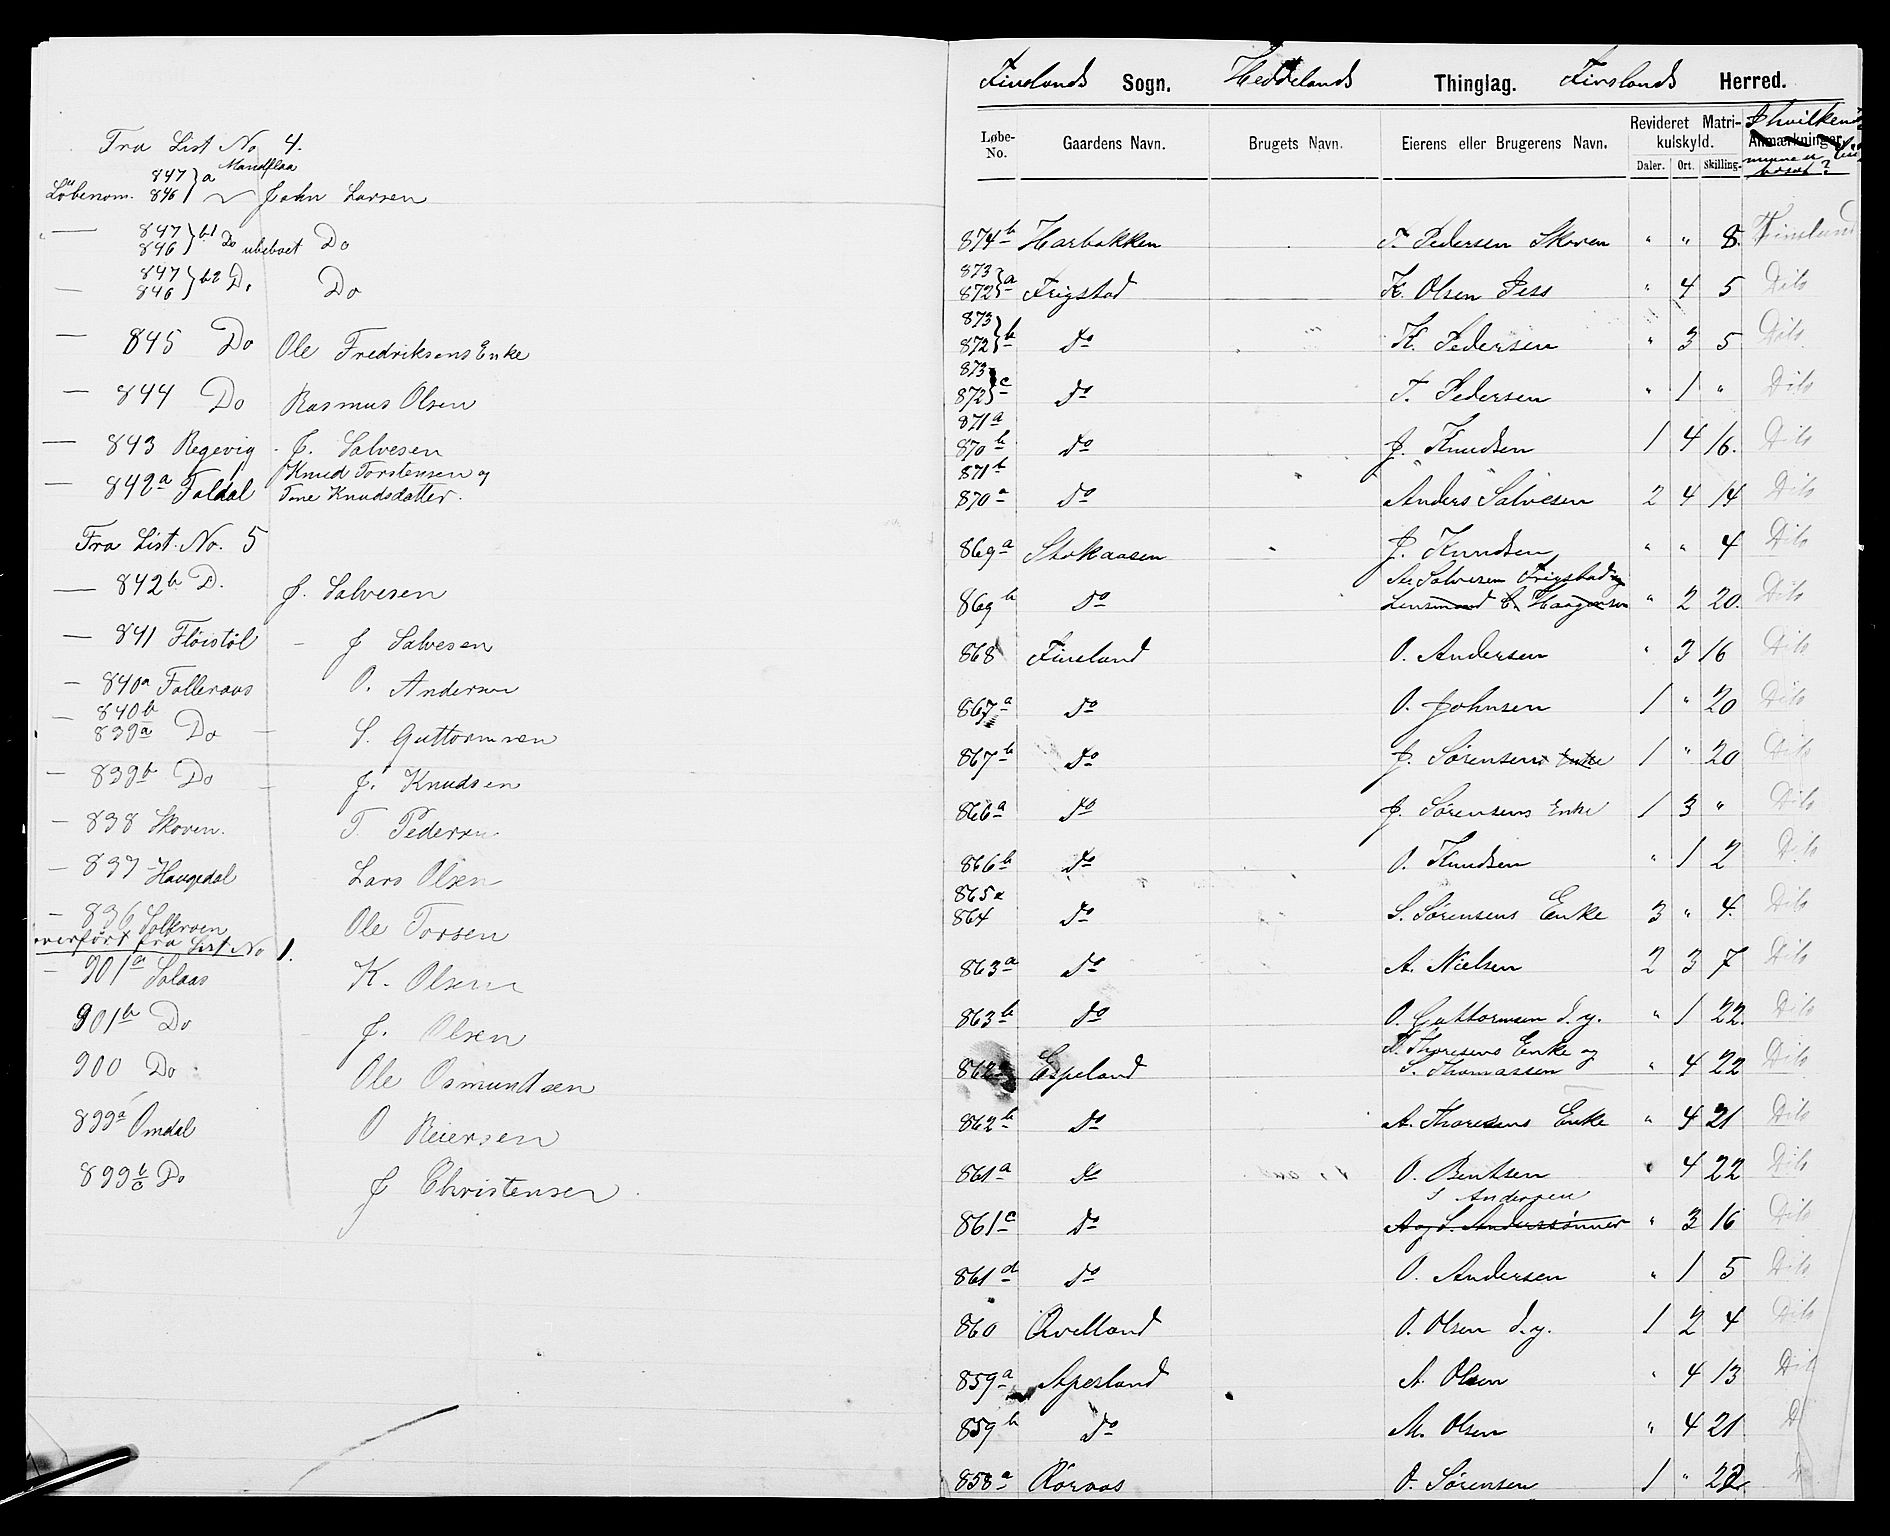 Fra List No 4.
Løbenom. 847 846 } a Mandflaa John Larsen
— 847 846 } b1 Do ubeboet Do
— 847 846 } b2 Do Do
— 845 Do Ole Fredriksens Enke
— 844 Do Rasmus Olsen
— 843 Regevig J. Salvesen
— 842a Faldal Knud Torstensen og
Tone Knudsdatter.
Fra List. No. 5
— 842b D. J. Salvesen
— 841 Fløistøl – J Salvesen
— 840a Falleraas O. Andersen
— 840b
839a Do – S. Guttormsen
— 839b Do – J. Knudsen
— 838 Skoven. T. Pedersen
— 837 Haugedal Lars Olsen
— 836 Ole Torsen
overført fra List No 1.
— 901a Solaas K. Olsen
901b Do J. Olsen
900 Do Ole Osmundsen
899a Omdal O Reiersen
899 b/c Do J Christensen
Finslands Sogn. Heddelands Thinglag. Finslands Herred.
Løbe-No. Gaardens Navn. Brugets Navn. Eierens eller Brugerens Navn. Revideret Matrikulskyld. Anmærkninger.
Daler. Ort. Skilling.
874b Harbakken T. Pedersen Skoven " " 8. Finsland
873 872 } a Frigstad K. Olsen Jess " 4 5 Dito
873 872 } b Do K. Pedersen " 3 5 Dito
873 872 } c Do T. Pedersen " 1 " Dito
871a
870b Do J. Knudsen 1 4 16. Dito
871b
870a Do Anders Salvesen 2 4 14 Dito
869a Stokaasen J. Knudsen " " 4 Dito
869b Do Salvesen Frigstad og
Lensmand Haagensen " 2 20. Dito
868 Finsland O. Andersen " 3 16 Dito
867a Do O. Johnsen 1 " 20 Dito
867b Do J. Sørensens Enke 1 " 20 Dito
866a Do J. Sørensens Enke 1 3 " Dito
866b Do O. Knudsen " 1 2 Dito
865a
864 Do S. Sørensens Enke 3 " 4. Dito
863a Do A. Nielsen 2 3 7 Dito
863b Do O. Guttormsen d. y. " 1 22. Dito
862a Espeland T. Thoresens Enke og
S. Thomassen " 4 22 Dito
862b Do A. Thoresens Enke " 4 21 Dito
861a Do O. Bentsen " 4 22 Dito
S Andersen
861c Do A og S. Anderssønner " 3 16 Dito
861d Do O. Andersen " 1 5 Dito
860 Qvelland O. Olsen d. y. 1 2 4 Dito
859a Apesland A. Olsen " 4 13 Dito
859b Do M. Olsen " 4 21 D
858a Røraas O. Sørensen 1 " 22